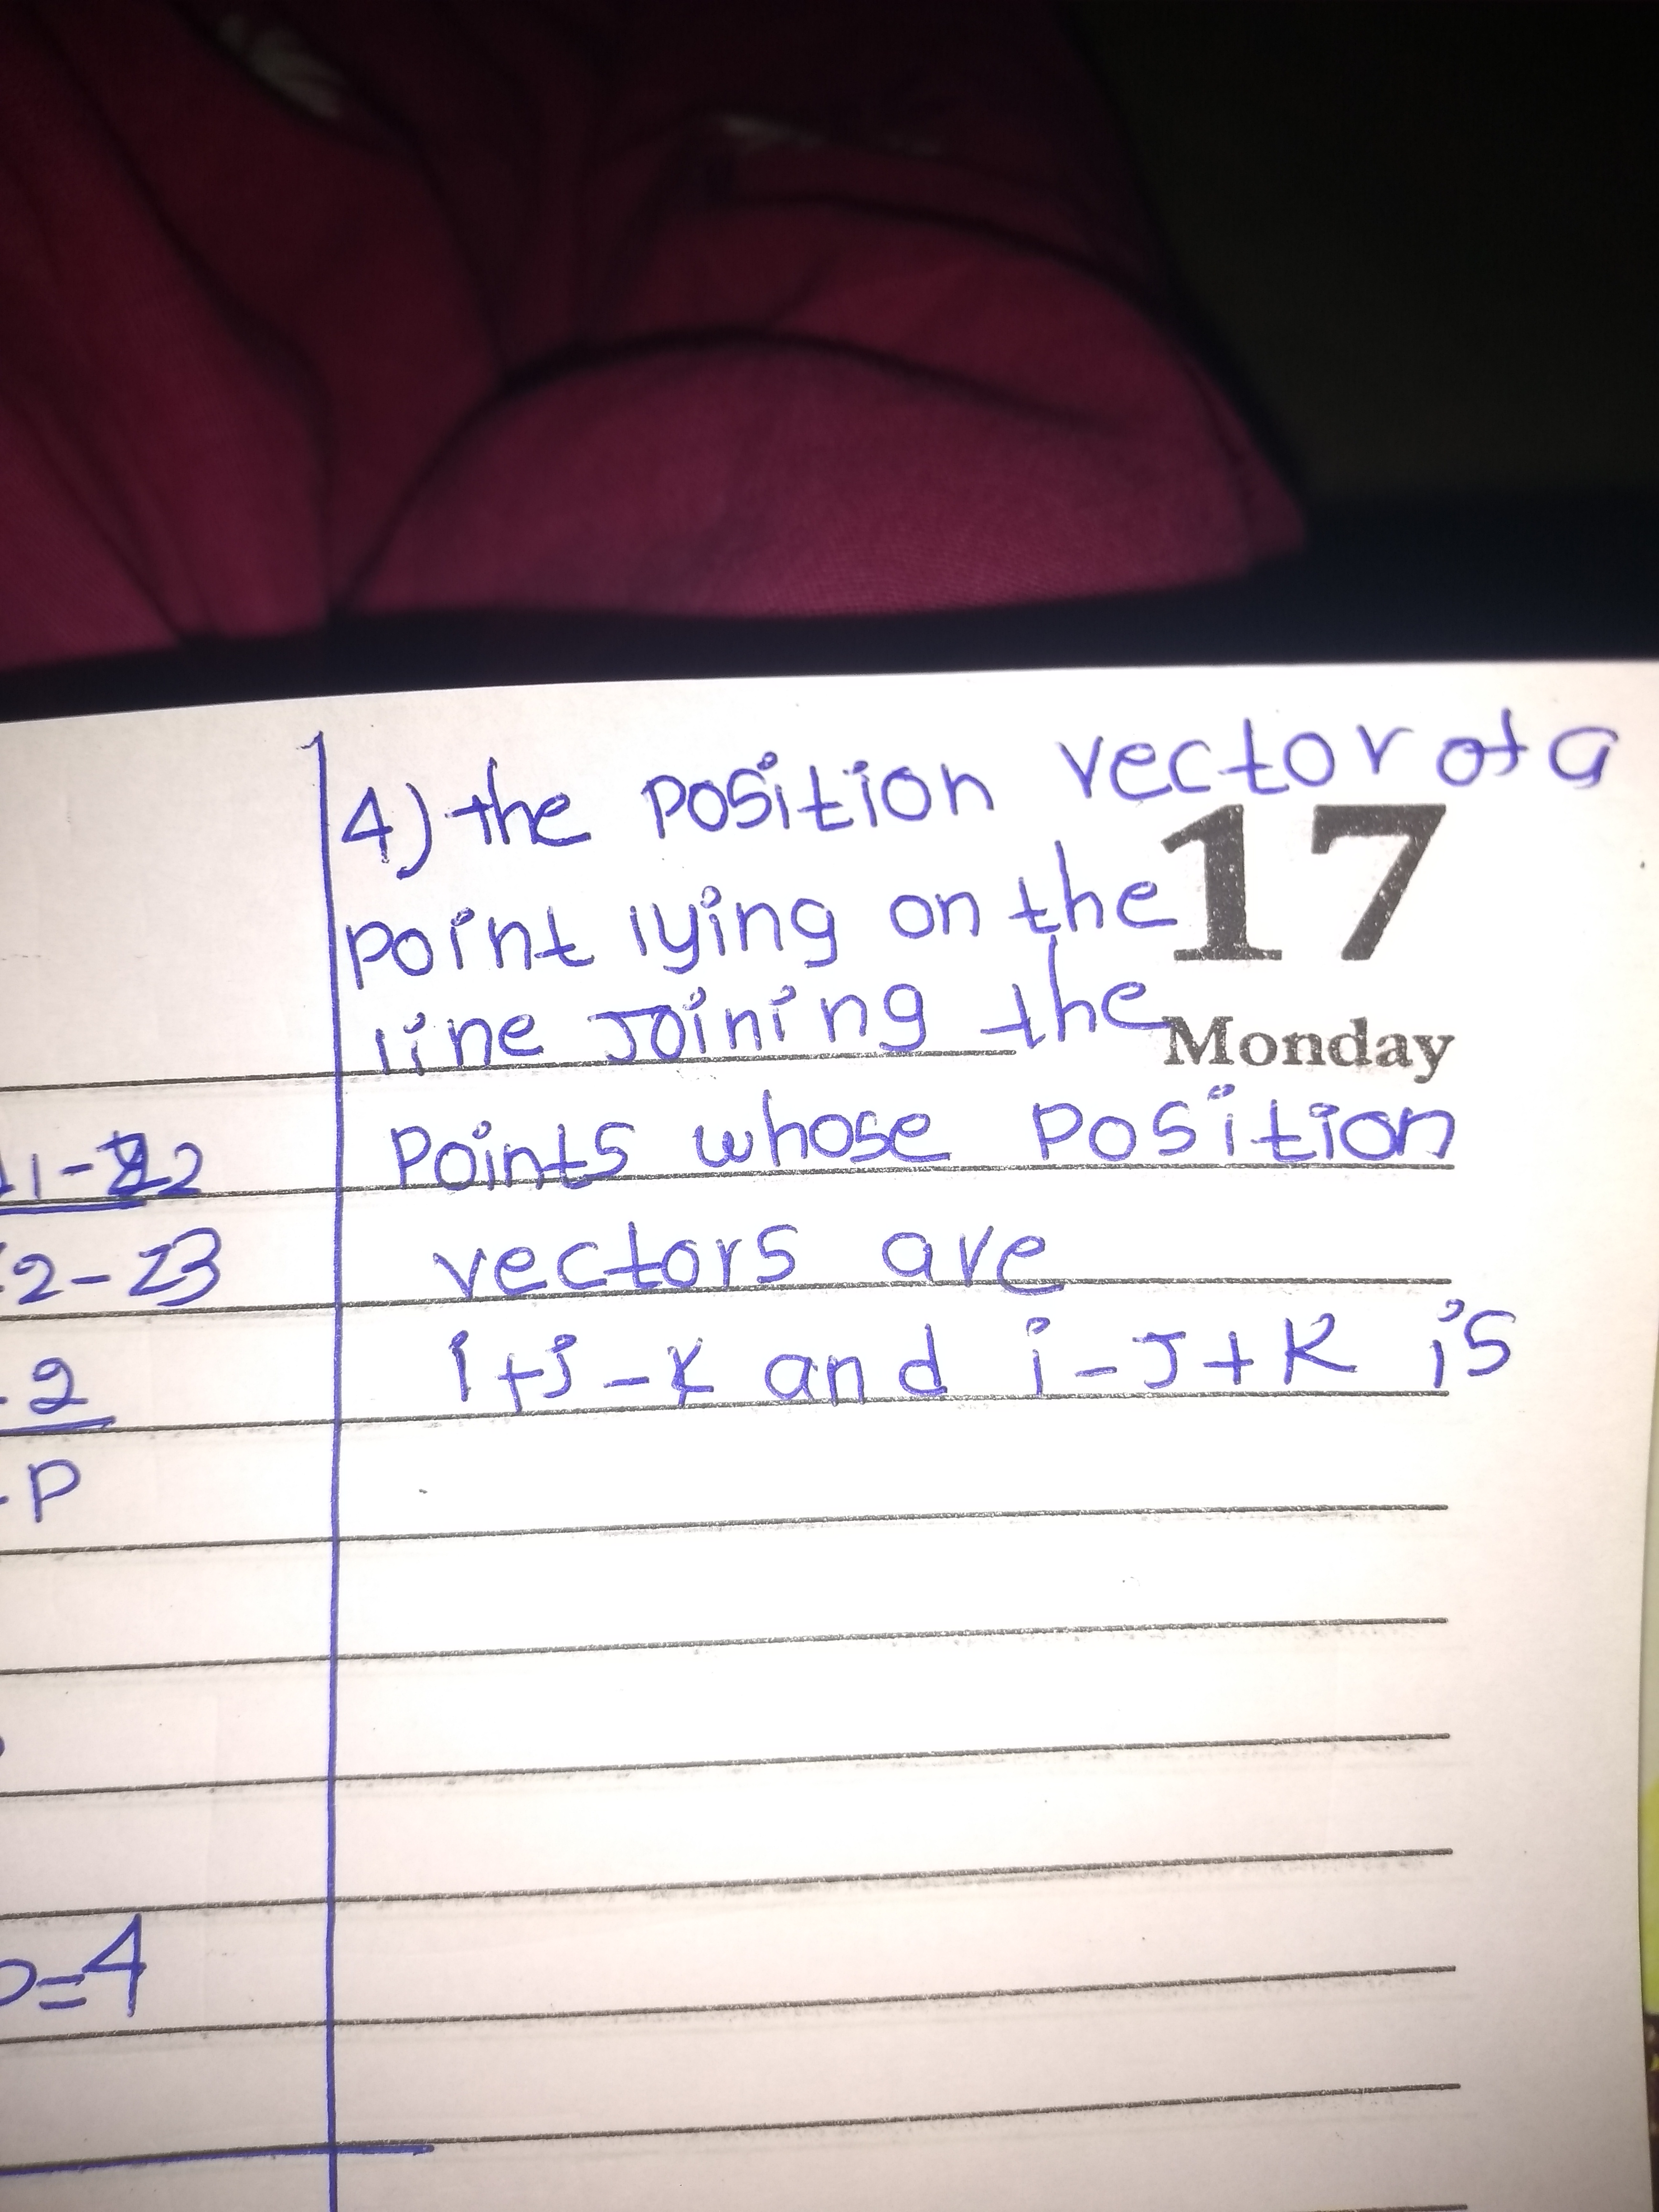 4) the position vector of a
17
point lying on the
line Joining the
Monday
Points whose position
vectors are
i+j-k and i-J+k is
2-23
2
-P
=4